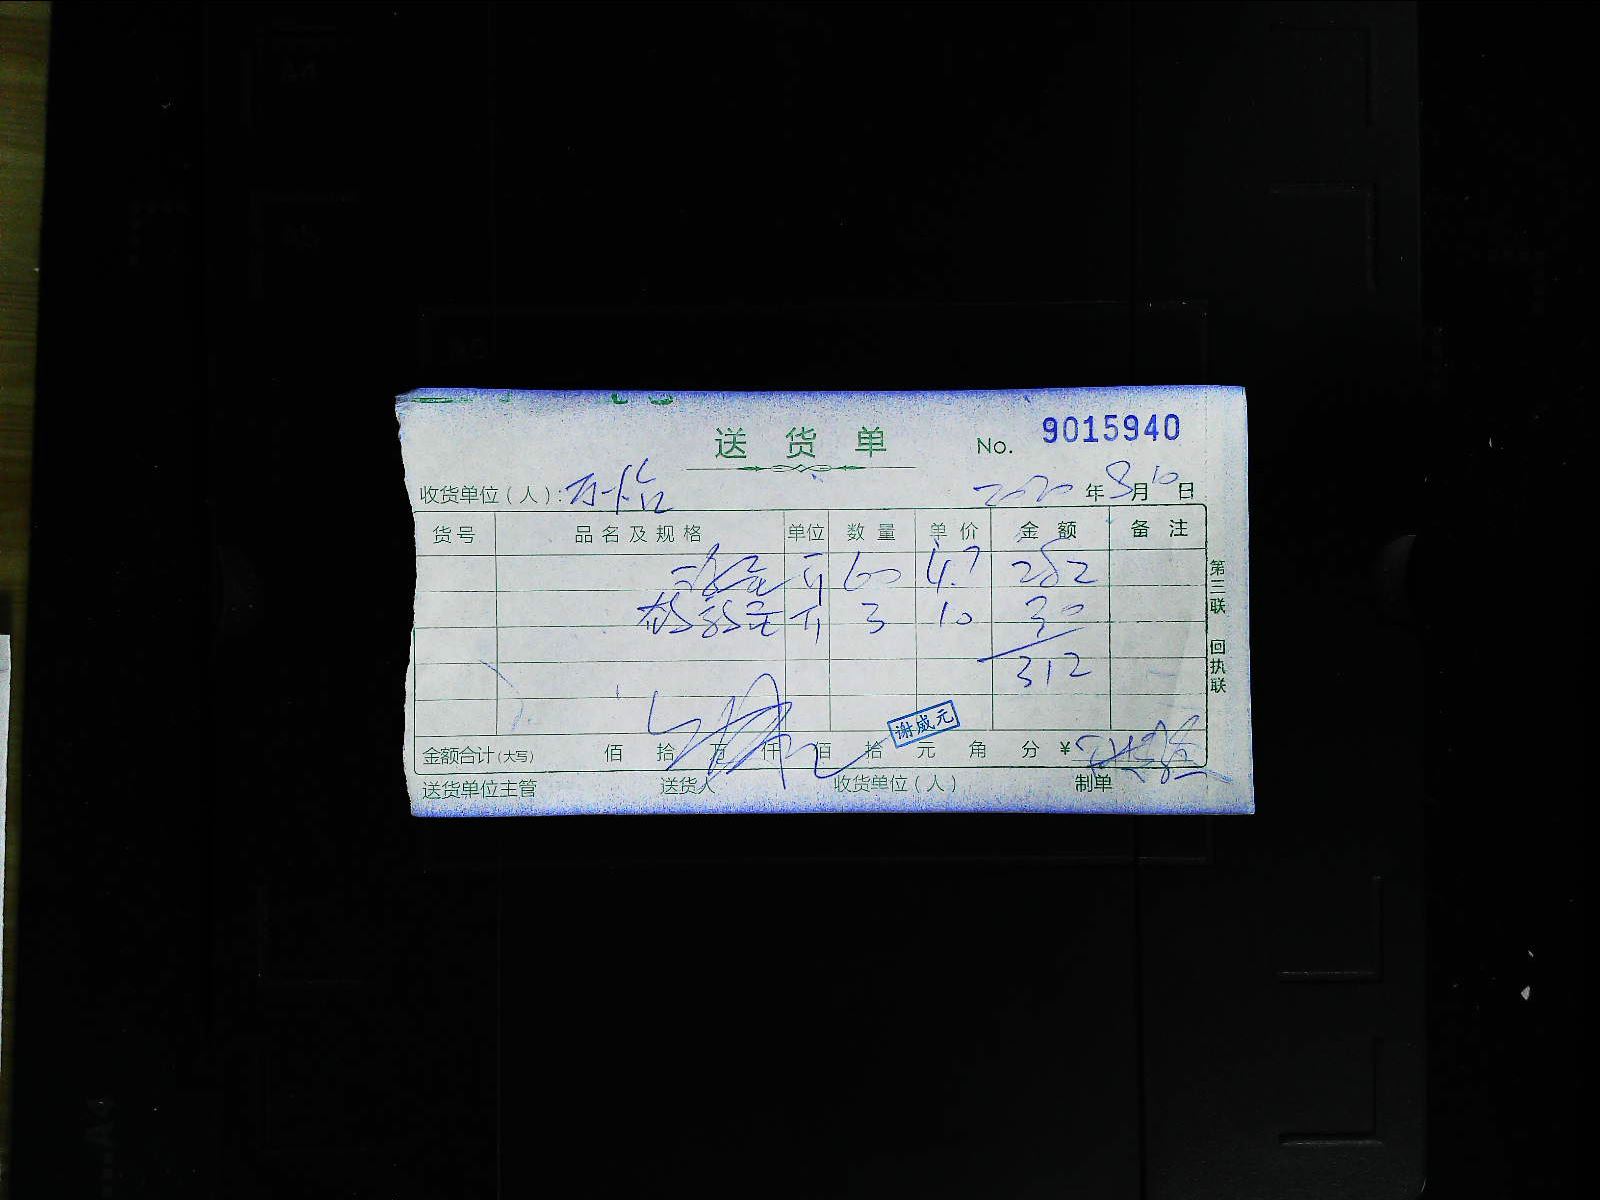 送货单
No. 9015940
收货单位（人）：
2020年8月10日
货号 品名及规格 单位 数量 单价 金额 备注
斤 60 4.7 282
斤 3 10 30
312
谢威元
金额合计(大写) 佰 拾 万 仟 佰 拾 元 角 分 ¥
送货单位主管 送货人 收货单位（人） 制单
第三联 回执联